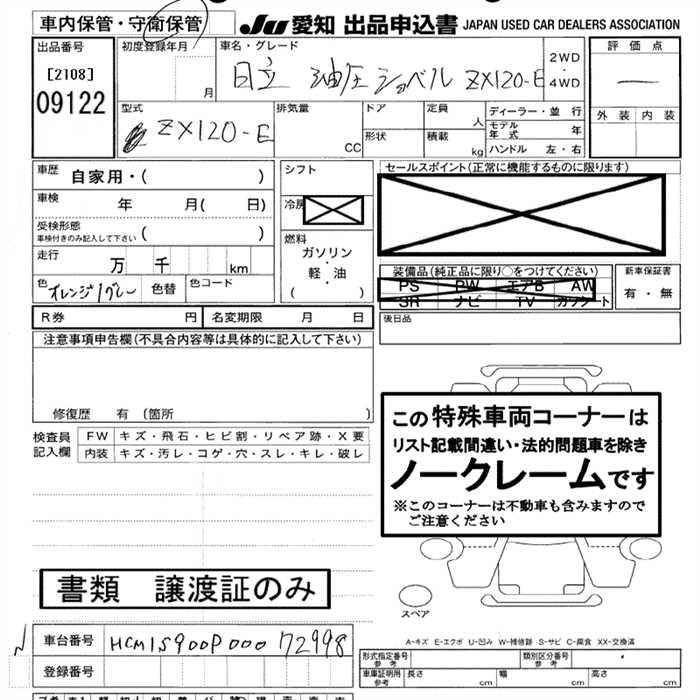 車内保管・守衛保管
JU 愛知 出品申込書 JAPAN USED CAR DEALERS ASSOCIATION
出品番号
[2108]
09122
初度登録年月
月
車名・グレード
日立 油圧ショベル ZX120-E
2WD
・
4WD
評価点
外装 内装
型式
ZX120-E
排気量
CC
ドア
形状
定員
人
積載
kg
ディーラー・並行
モデル年式 年
ハンドル 左・右
車歴
自家用・( )
車検
年 月( 日)
受検形態
車検付きのみ記入して下さい ( )
走行
万 千 km
色 オレンジ/グレー 色替 色コード
シフト
冷房
燃料
ガソリン
・
軽・油
( )
セールスポイント(正常に機能するものに限ります)
装備品(純正品に限り○をつけてください)
PS PW エアB AW
SR ナビ TV カセット
新車保証書
有・無
R券 円 名変期限 月 日
後日品
注意事項申告欄(不具合内容等は具体的に記入して下さい)
修復歴 有 〔箇所 〕
検査員
記入欄
FW キズ・飛石・ヒビ割・リペア跡・X要
内装 キズ・汚レ・コゲ・穴・スレ・キレ・破レ
この特殊車両コーナーは
リスト記載間違い・法的問題車を除き
ノークレームです
※このコーナーは不動車も含みますので
ご注意ください
書類 譲渡証のみ
スペア
A-キズ E-エクボ U-凹み W-補修跡 S-サビ C-腐食 XX-交換済
車台番号 HCM1S900P00072998
登録番号
形式指定番号
参考
類別区分番号
参考
車庫証明用
参考
長さ cm
幅 cm
高さ cm